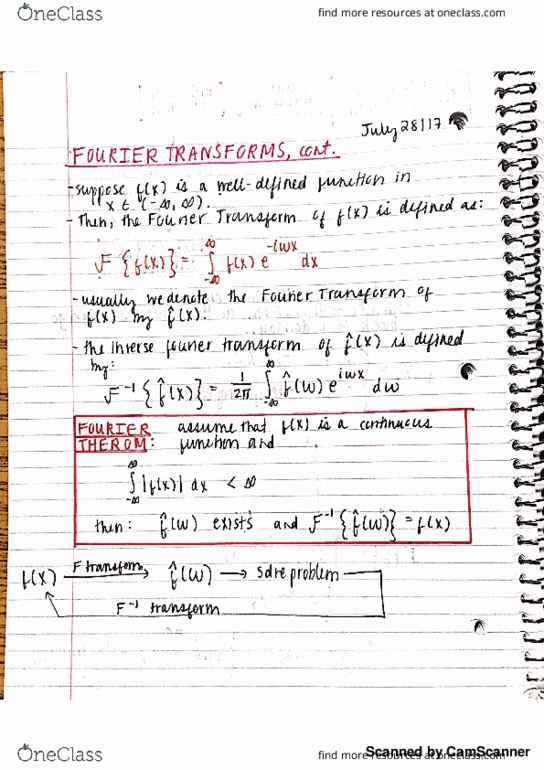 OneClass
find more resources at oneclass.com
July 28/17
FOURIER TRANSFORMS, cont.
- suppose f(x) is a well-defined function in
x ∈ (-∞, ∞).
- Then, the Fourier Transform of f(x) is defined as:
F {f(x)} = ∫_{-∞}^{∞} f(x) e^{-iwx} dx
- usually we denote the Fourier Transform of
f(x) by f̂(x).
- the inverse fourier transform of f̂(x) is defined
by:
F^{-1} {f̂(x)} = 1/2π ∫_{-∞}^{∞} f̂(w) e^{iwx} dw
FOURIER assume that f(x) is a continuous
THEROM: function and
∫_{-∞}^{∞} |f(x)| dx < ∞
then: f̂(w) exists and F^{-1} {f̂(w)} = f(x)
f(x) F transform → f̂(w) → solve problem
F^{-1} transform
OneClass
find more resources at oneclass.com
Scanned by CamScanner